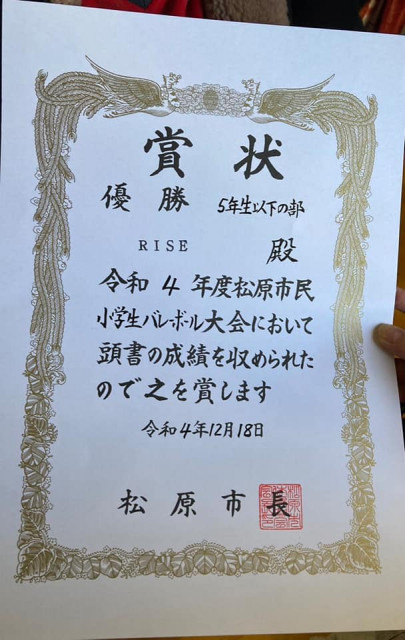 賞状
優勝 5年生以下の部
RISE 殿
令和4年度松原市民
小学生バレーボール大会において
頭書の成績を収められた
ので之を賞します
令和4年12月18日
松原市長